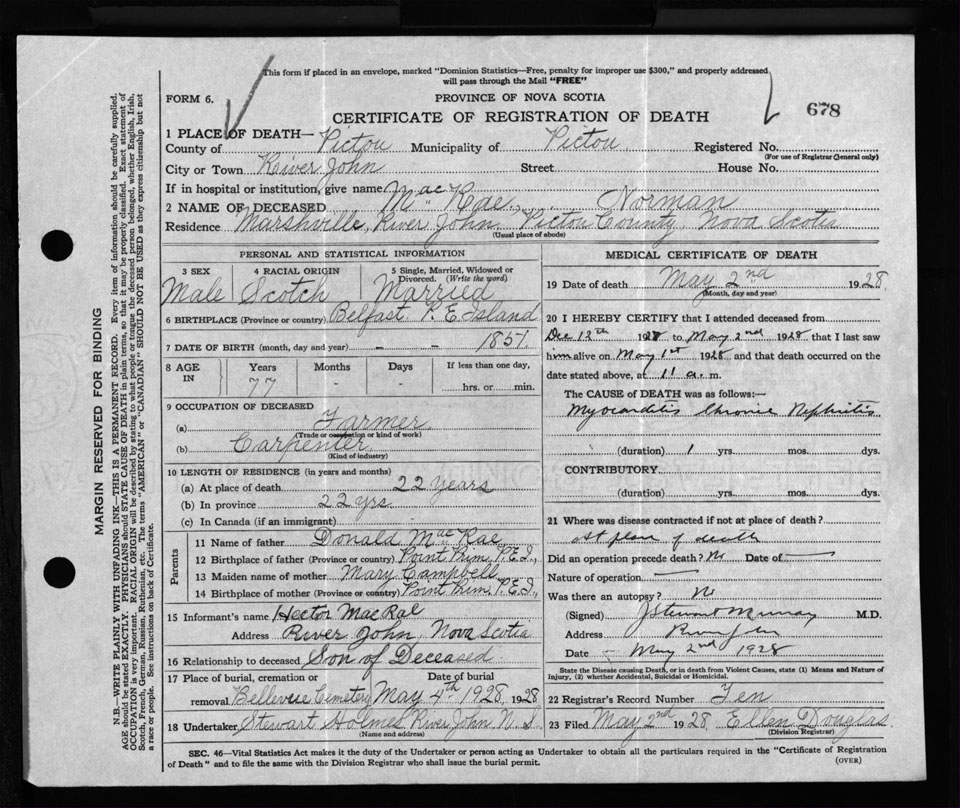 This form if placed in an envelope, marked "Dominion Statistics—Free, penalty for improper use $300," and properly addressed
will pass through the Mail "FREE"
FORM 6.
PROVINCE OF NOVA SCOTIA
678
CERTIFICATE OF REGISTRATION OF DEATH
1 PLACE OF DEATH—
County of Pictou Municipality of Pictou. Registered No.
(For use of Registrar General only)
City or Town River John Street House No.
If in hospital or institution, give name
2 NAME OF DECEASED MacRae, Norman
Residence Marshville, River John Pictou County, Nova Scotia
(Usual place of abode)
PERSONAL AND STATISTICAL INFORMATION
3 SEX 4 RACIAL ORIGIN 5 Single, Married, Widowed or
Divorced. (Write the word)
Male Scotch Married
6 BIRTHPLACE (Province or country) Belfast P. E. Island
7 DATE OF BIRTH (month, day and year) - - 1851
8 AGE IN Years Months Days If less than one day,
77 - - hrs. or min.
9 OCCUPATION OF DECEASED
(a) Farmer
(Trade or occupation or kind of work)
(b) Carpenter
(Kind of industry)
10 LENGTH OF RESIDENCE (in years and months)
(a) At place of death 22 years
(b) In province 22 yrs
(c) In Canada (if an immigrant)
Parents
11 Name of father Donald MacRae
12 Birthplace of father (Province or country) Point Prim, P.E.I.,
13 Maiden name of mother Mary Campbell
14 Birthplace of mother (Province or country) Point Prim, P.E.I.,
15 Informant's name Hector MacRae
Address River John, Nova Scotia
16 Relationship to deceased Son of Deceased
17 Place of burial, cremation or Date of burial
removal Cemetery May 4th 1928, 1928
18 Undertaker Stewart Holmes River John N. S
(Name and address)
MEDICAL CERTIFICATE OF DEATH
19 Date of death May 2nd 1928
(Month, day and year)
20 I HEREBY CERTIFY that I attended deceased from
Dec 12th 1928 to May 2nd 1928 that I last saw
him alive on May 1st 1928 and that death occurred on the
date stated above, at 11 a. m.
The CAUSE of DEATH was as follows:—
Myocarditis Chronic Nephritis
(duration) 1 yrs. mos. dys.
CONTRIBUTORY
(duration) yrs. mos. dys.
21 Where was disease contracted if not at place of death?
At place of death
Did an operation precede death? No Date of —
Nature of operation —
Was there an autopsy? No
(Signed) J Stewart Murray M.D.
Address
Date May 2nd 1928
State the Disease causing Death, or in death from Violent Causes, state (1) Means and Nature of
Injury, (2) whether Accidental, Suicidal or Homicidal.
22 Registrar's Record Number Ten
23 Filed May 2nd 1928 Ellen Douglas
(Division Registrar)
SEC. 46—Vital Statistics Act makes it the duty of the Undertaker or person acting as Undertaker to obtain all the particulars required in the "Certificate of Registration
of Death" and to file the same with the Division Registrar who shall issue the burial permit.
(OVER)
MARGIN RESERVED FOR BINDING
N.B.—WRITE PLAINLY WITH UNFADING INK—THIS IS A PERMANENT RECORD. Every item of information should be carefully supplied.
AGE should be stated EXACTLY. PHYSICIANS should STATE CAUSE OF DEATH in plain terms, so that it may be properly classified. Exact statement of
OCCUPATION is very important. RACIAL ORIGIN will be described by stating to what people or tongue the deceased person belonged, whether English, Irish,
Scotch, French, German, Russian, Ruthenian, etc. The terms "AMERICAN" or "CANADIAN" SHOULD NOT BE USED as they express citizenship but not
a race or people. See instructions on back of Certificate.